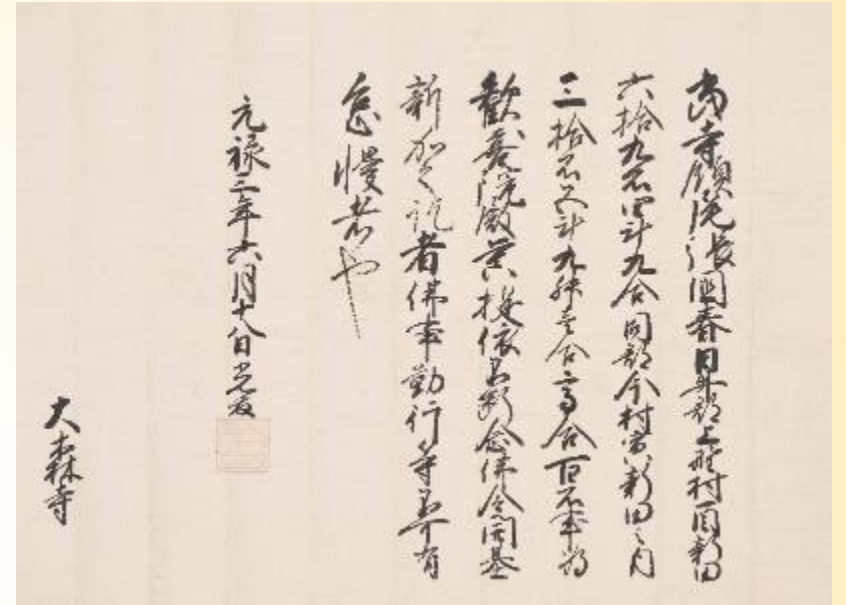 当寺領尾張国春日井郡上野村同新田
六拾九石四斗九合同郡今村当新田之内
三拾石五斗九升壱合高合百石事為
歓喜院殿菩提依為断念仏令開基
新加之訖者佛事勤行等不可有
怠慢者也
元禄三年六月十八日光友
大森寺